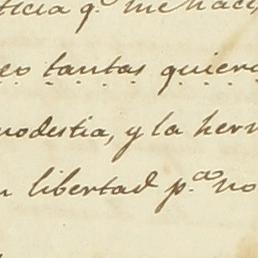 ticia q.e me hace
eo tantas quiera
modestia, y la her
n libertad p.a no